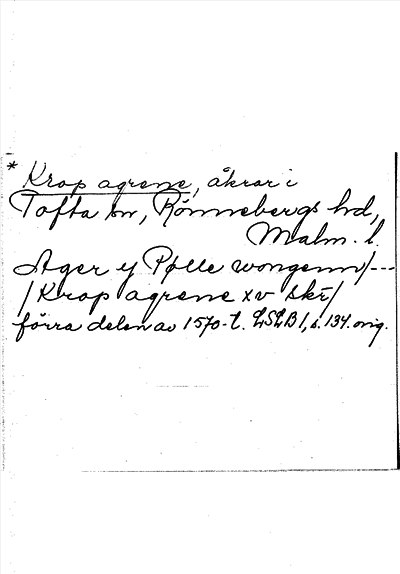 * Krop agrene, åkrar i
Tofta sn, Rönnebergs hd,
Malm. l.
Ager y Pølle wongenn/---
/Krop agrene xv skr/
förra delen av 1570-t. LSLB 1, s. 134. orig.